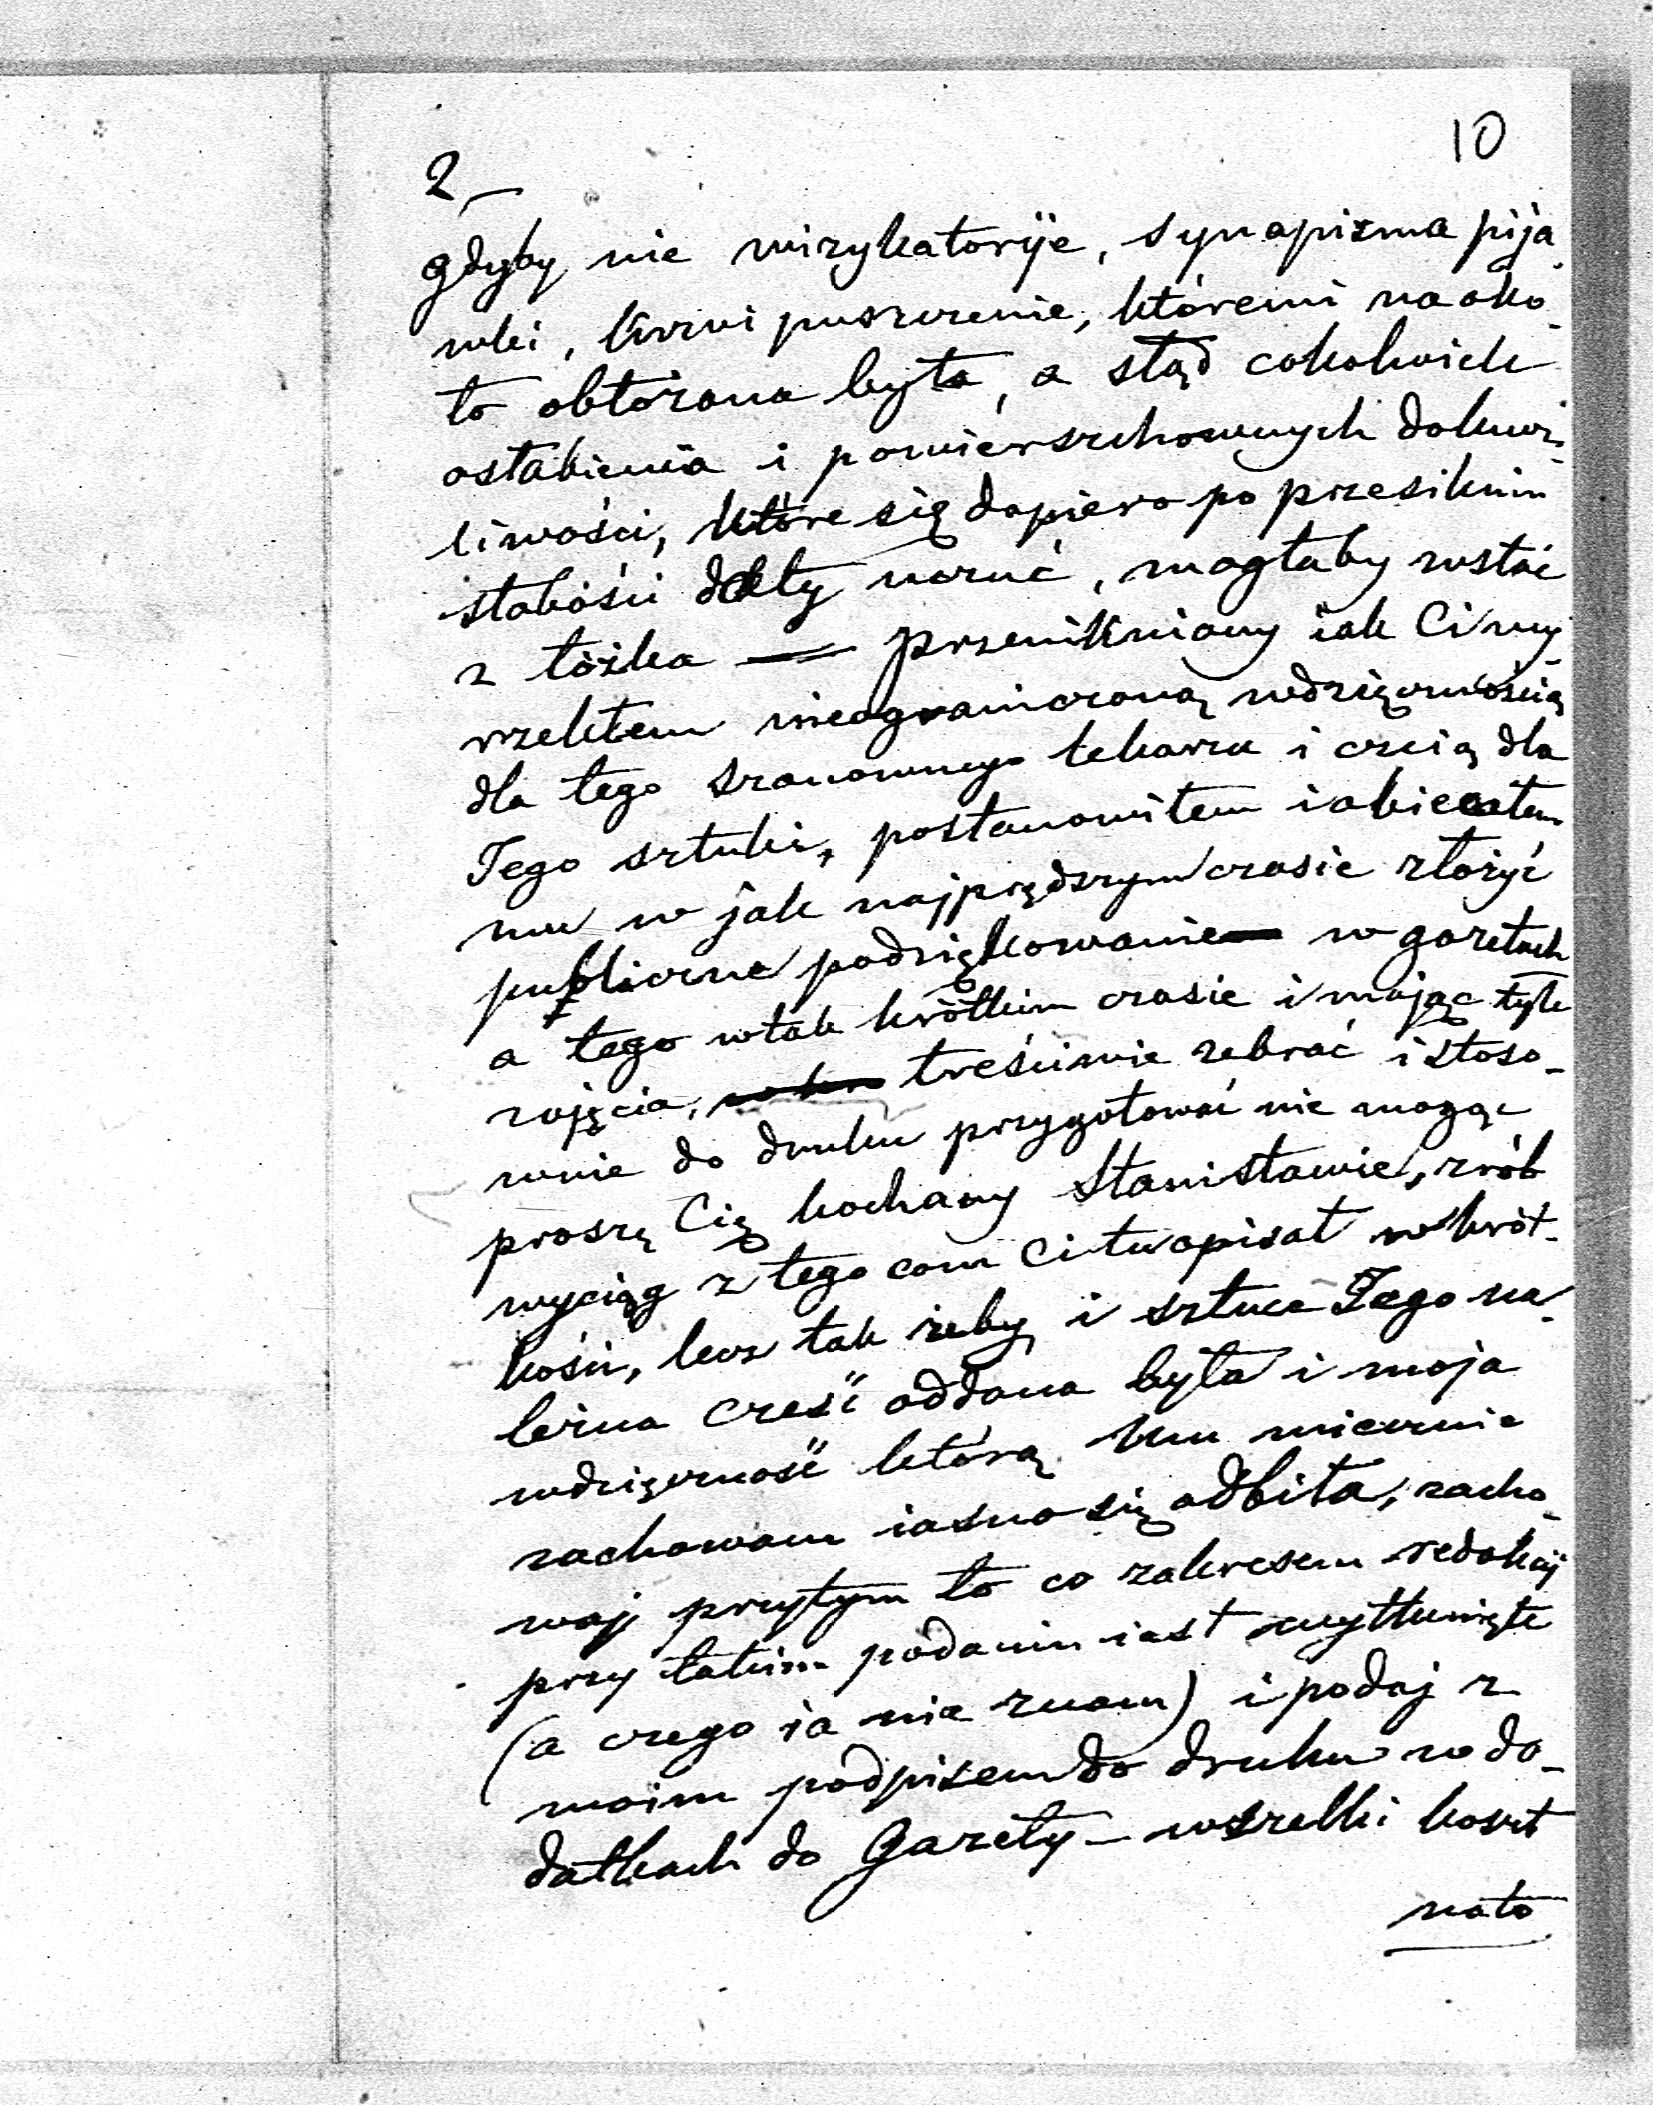 10
2
gdyby nie wizykatorije, synapizma pija_
wki, krwi puszczenie, któremi naoko_
ło obłożona była, a stąd cokolwiek
osłabienia i powierszchownych dokucz_
liwości, które się dopiero po przesileniu
słabości dały uczuć, mogłaby wstać
z łóżka — przenikniony iak Ci wy_
rzekłem nieograniczoną wdzięcznością
dla tego szanownego lekarza i czcią dla
Jego sztuki, postanowiłem i obiecałem
mu w jak najprędszym czasie złożyć
publiczne podziękowanie w gazetach
a tego w tak krótkim czasie i mając tyle
zajęcia, treściwie zebrać i stoso_
wnie do druku przygotować nie mogąc
proszę Cię kochany Stanisławie, zrób
wyciąg z tego com Ci tu opisał w krót_
kości, lecz tak żeby i sztuce Jego na_
leżna cześć oddana była i moja
wdzięczność którą Mu wiecznie
zachowam iasno się odbiła, zacho_
waj przytym to co zakresem redakcij
przy takim podaniu iest wytknięte
(a czego ia nie znam) i podaj z
moim podpisem do druku w do_
datkach do Gazety – wszelki koszt
nato